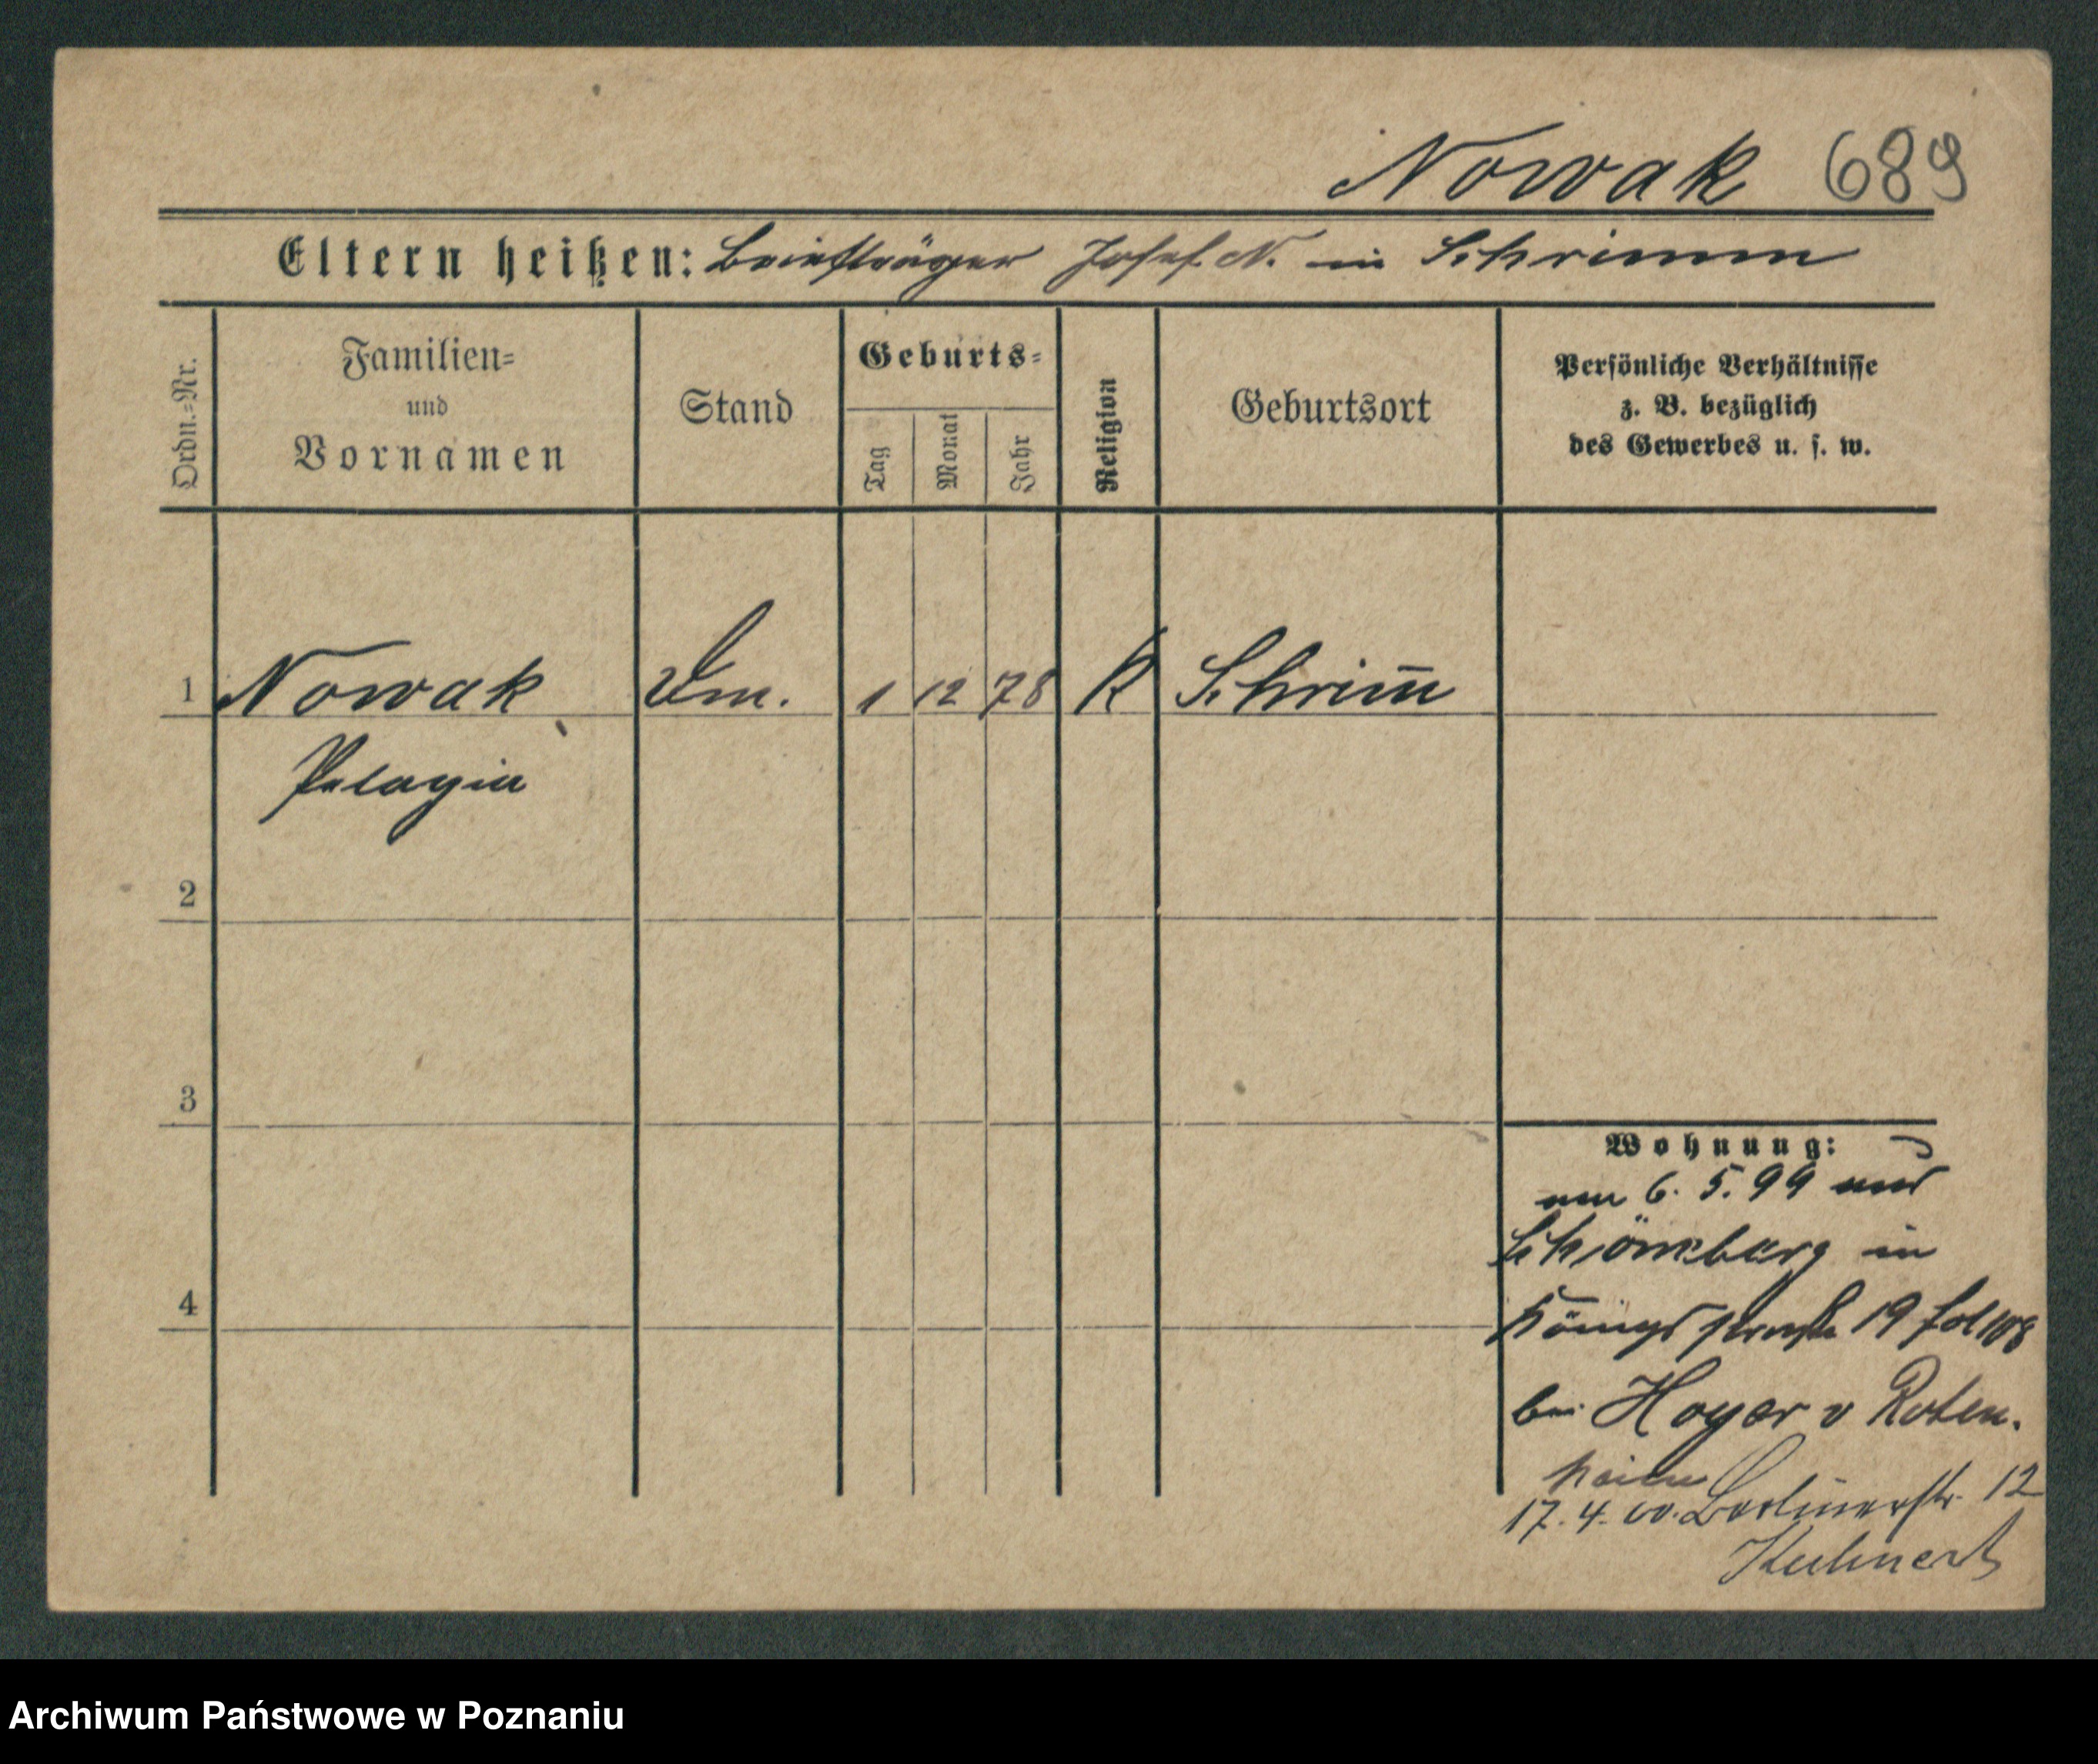 Nowak 689
Eltern heißen: Briefträger Josef N. in Schrimm
Ordn.-Nr.
Familien-
und
Vornamen
Stand
Geburts-
Tag
Monat
Jahr
Religion
Geburtsort
Persönliche Verhältnisse
z. B. bezüglich
des Gewerbes u. s. w.
1 Nowak 1 12 78 K Schrim̄
Pelagia
2
3
4
Wohnung:
6. 5. 99 aus
Schöneberg in
Königsstraße 19 fol 108
bei Hoyer v Roten.
hain
17. 4. 00. Berlinerstr. 12
Kuhnert
Archiwum Państwowe w Poznaniu